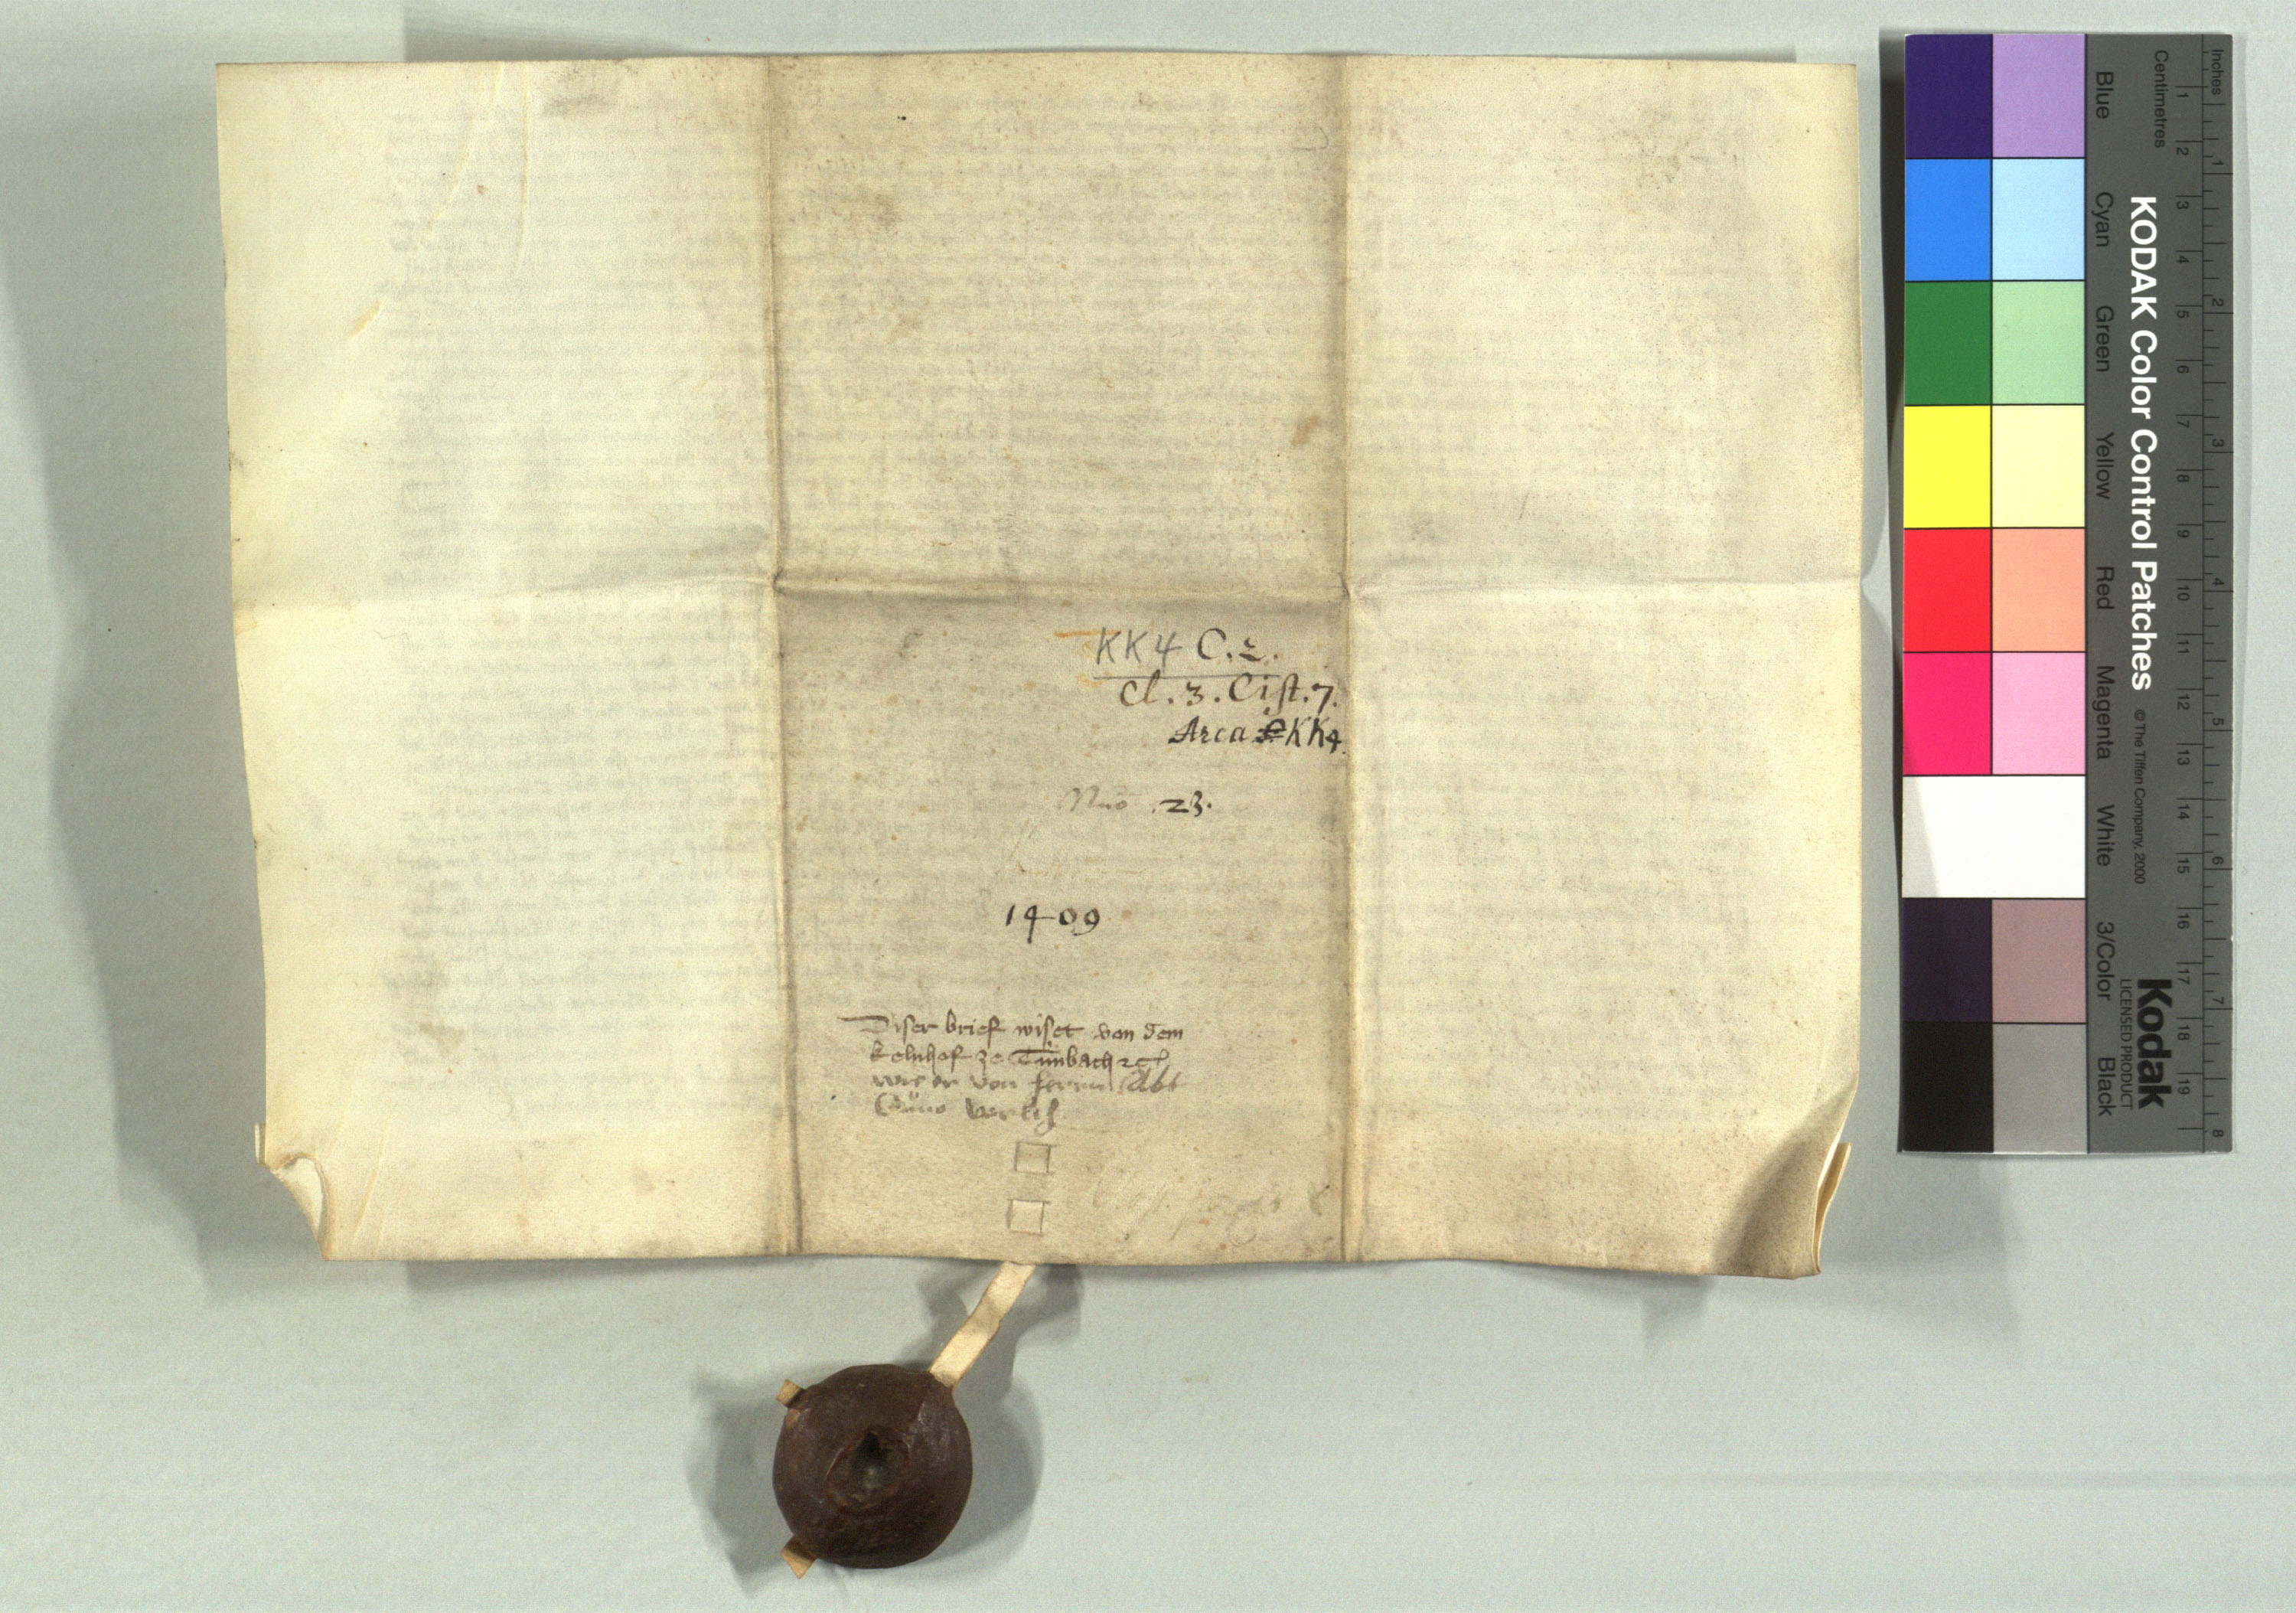 KK4 C.2.
Cl. 3. Cist. 7.
Arca KK4.
Nro .23.
1409
Diser brief wiset von dem
kelnhof ze Tunbach
wie er von herrn Abt
Cůno verlih
Inches
Centimetres
1 2 3 4 5 6 7 8 9 10 11 12 13 14 15 16 17 18 19
1 2 3 4 5 6 7 8
KODAK Color Control Patches © The Tiffen Company, 2000
Kodak
LICENSED PRODUCT
Blue Cyan Green Yellow Red Magenta White 3/Color Black